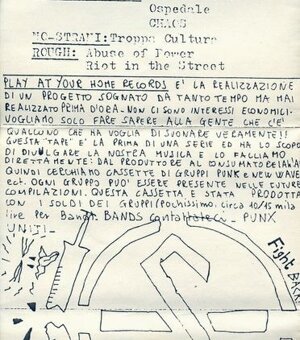 Ospedale
CHAOS
MC-STRANI: Troppa Cultura
ROUGH: Abuse of Power
Riot in the Street
PLAY AT YOUR HOME RECORDS E' LA REALIZZAZIONE
DI UN PROGETTO SOGNATO DA TANTO TEMPO MA MAI
REALIZZATO PRIMA D'ORA. NON CI SONO INTERESSI ECONOMICI.
VOGLIAMO SOLO FARE SAPERE ALLA GENTE CHE C'E'
QUALCUNO CHE HA VOGLIA DI SUONARE VERAMENTE!!
QUESTA "TAPE" E' LA PRIMA DI UNA SERIE ED HA LO SCOPO
DI DIVULGARE LA NOSTRA MUSICA E LO FACCIAMO
DIRETTAMENTE: DAL PRODUTTORE AL CONSUMATORE!
QUINDI CERCHIAMO CASSETTE DI GRUPPI PUNK E NEW WAVE
ect. OGNI GRUPPO PUO' ESSERE PRESENTE NELLE FUTURE
COMPILAZIONI. QUESTA CASSETTA E STATA PRODOTTA
CON I SOLDI DEI GRUPPI (Pochissimo, circa 10/15 mila
lire per Band) BANDS contattateci - PUNX
UNITI -
Fight BACK